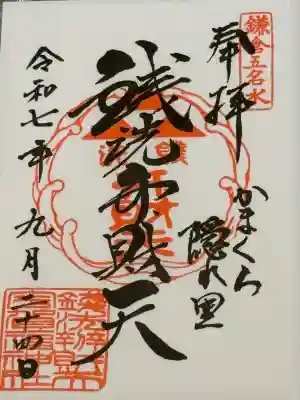 鎌倉五名水
奉拝
かまくら
隠れ里
銭洗弁財天
令和七年九月
二十四日